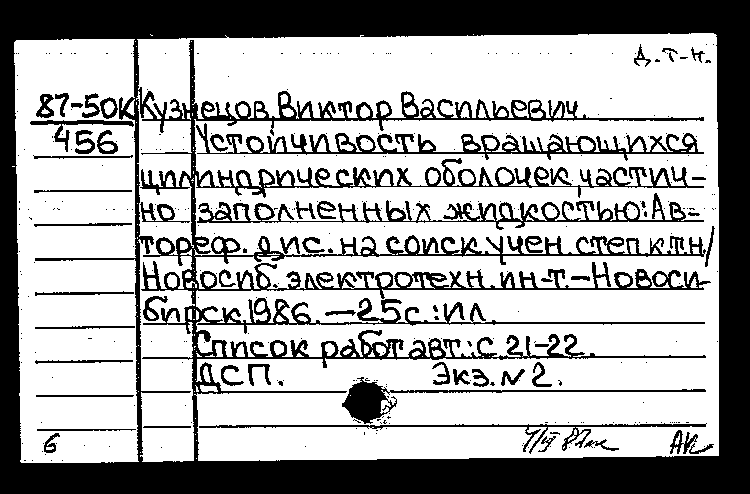 Д.т-н.
87-50К Кузнецов, Виктор Васильевич.
456 Устойчивость вращающихся
цилиндрических оболочек, частич-
но заполненных жидкостью: Ав-
тореф. дис. на соиск. учен. степ. к.т.н/
Новосиб. электротехн. ин-т. - Новоси-
бирск, 1986. - 25с.: ил.
Список работ авт.: с. 21-22.
ДСП. Экз. N 2.
6 АК